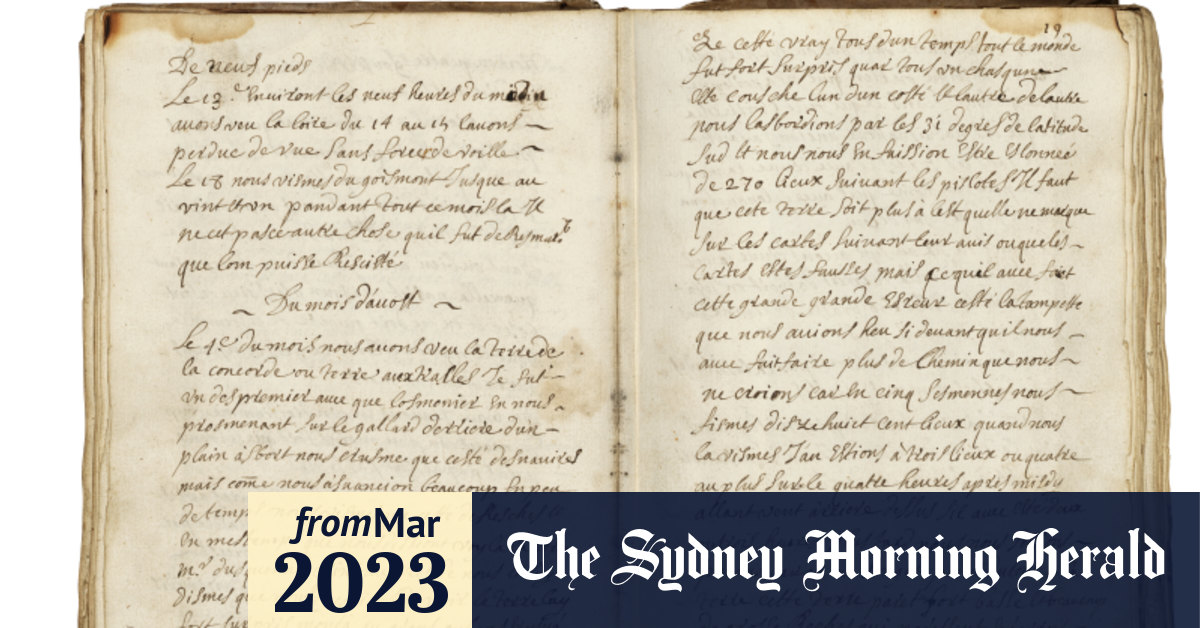 De neuf pieds
Le 13.e Environt les neuf heures du matin
avons veu la loire du 14 au 15 lavons
perdue de vue sans forcer de voille
Le 18 nous vismes du goismont Jusque au
vint et vn pandant tout ce mois la Il
ne cet passe autre chose quil fut de Remar
que lom puisse
Du mois davost
Le 4e du mois nous avons veu la terre de
la concorde ou terre Je fut
vn des premier avec que Cosmonier En nous
prosmenant sur le gallard derriere dun
plain abort nous crusme que cesté des navires
mais come nous beaucoup En peu
de temps
En mes
mr dusq
dismes que
fort sur
19
Ze cesté vray tous dun temps tout le monde
fut fort surpris quar tous vn chasqun
ete cousche lun dun costé Et lautre de lautre
nous lasbordions par les 31 degres de latitude
sud Et nous nous En faission Estre Eslonneé
de 270 lieux suivant les pislotes Il faut
que cete terre soit plus à lest quelle ne marque
sur les cartes suivant leur avis ou que les
cartes Estes fausses mais ce quil avec fait
cette grande grande Esreur cesté la tampeste
que nous avions heu si devant quil nous
avec fait faire plus de Chemin que nous
ne croions car En cinq sesmennes nous
fismes dis huict cent lieux quand nous
la vismes Jan Estions à trois lieux ou quatre
au plus sur le quatre heures apres midy
fromMar
2023
The Sydney Morning Herald